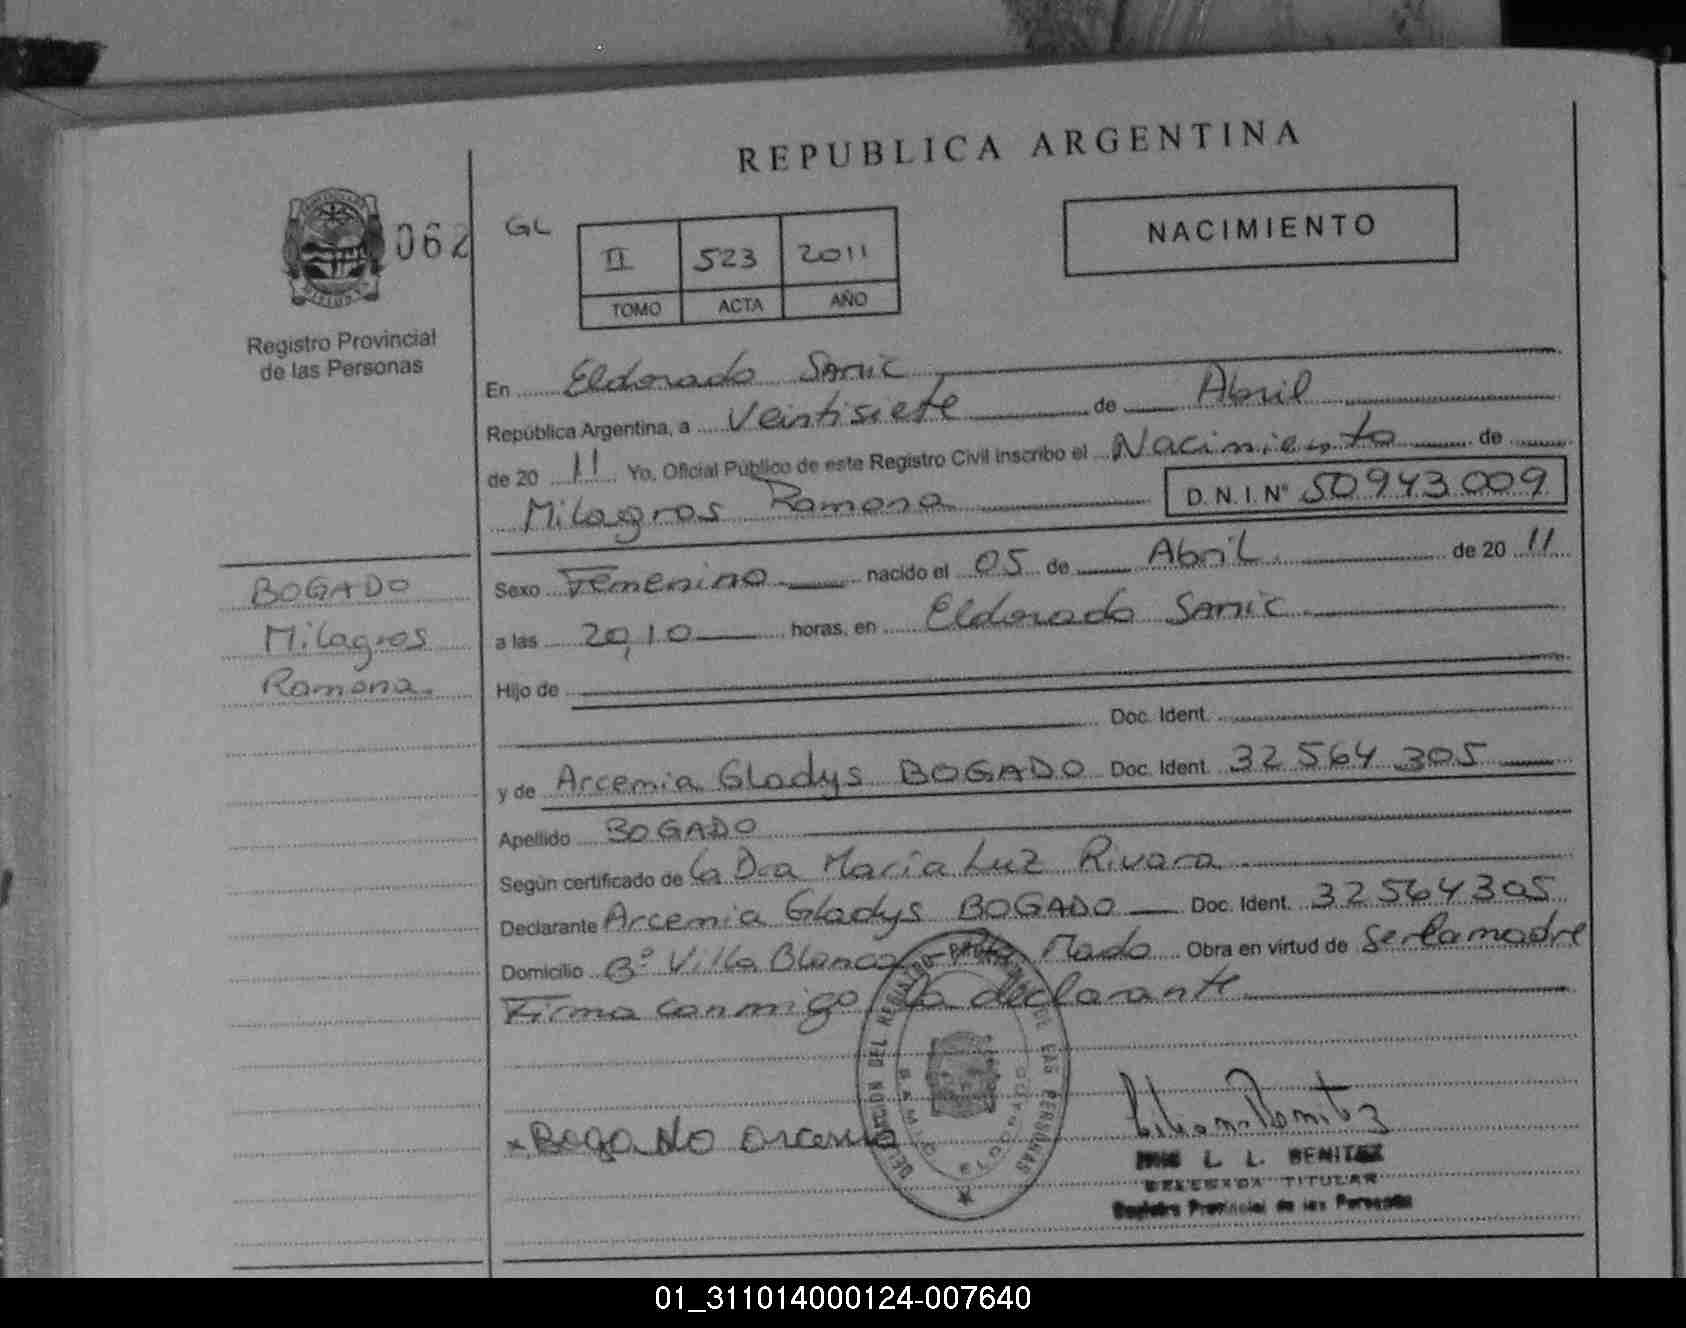 REPUBLICA ARGENTINA
062
GL
II 523 2011
TOMO ACTA AÑO
NACIMIENTO
Registro Provincial
de las Personas
En Eldorado Samic
República Argentina, a Veintisiete de Abril
de 20 11 Yo, Oficial Público de este Registro Civil inscribo el Nacimiento de
Milagros Ramona D.N.I.Nº 50943009
BOGADO
Milagros
Ramona.
Sexo Femenino nacido el 05 de Abril de 20 11
a las 20,10 horas, en Eldorado Samic
Hijo de
Doc. Ident.
y de Arcemia Gladys BOGADO Doc. Ident. 32564305
Apellido BOGADO
Según certificado de la Dra Maria Luz Rivara
Declarante Arcemia Gladys BOGADO Doc. Ident. 32564305
Domicilio Bº Villa Blanca - Mado Obra en virtud de Ser la madre
Firma conmigo la declarante
x Bogado arcemia
L. L. BENITEZ
DELEGADA TITULAR
Registro Provincial de las Personas
DEL REGISTRO PROVINCIAL DE LAS PERSONAS
SAMIC ELDORADO
01_311014000124-007640